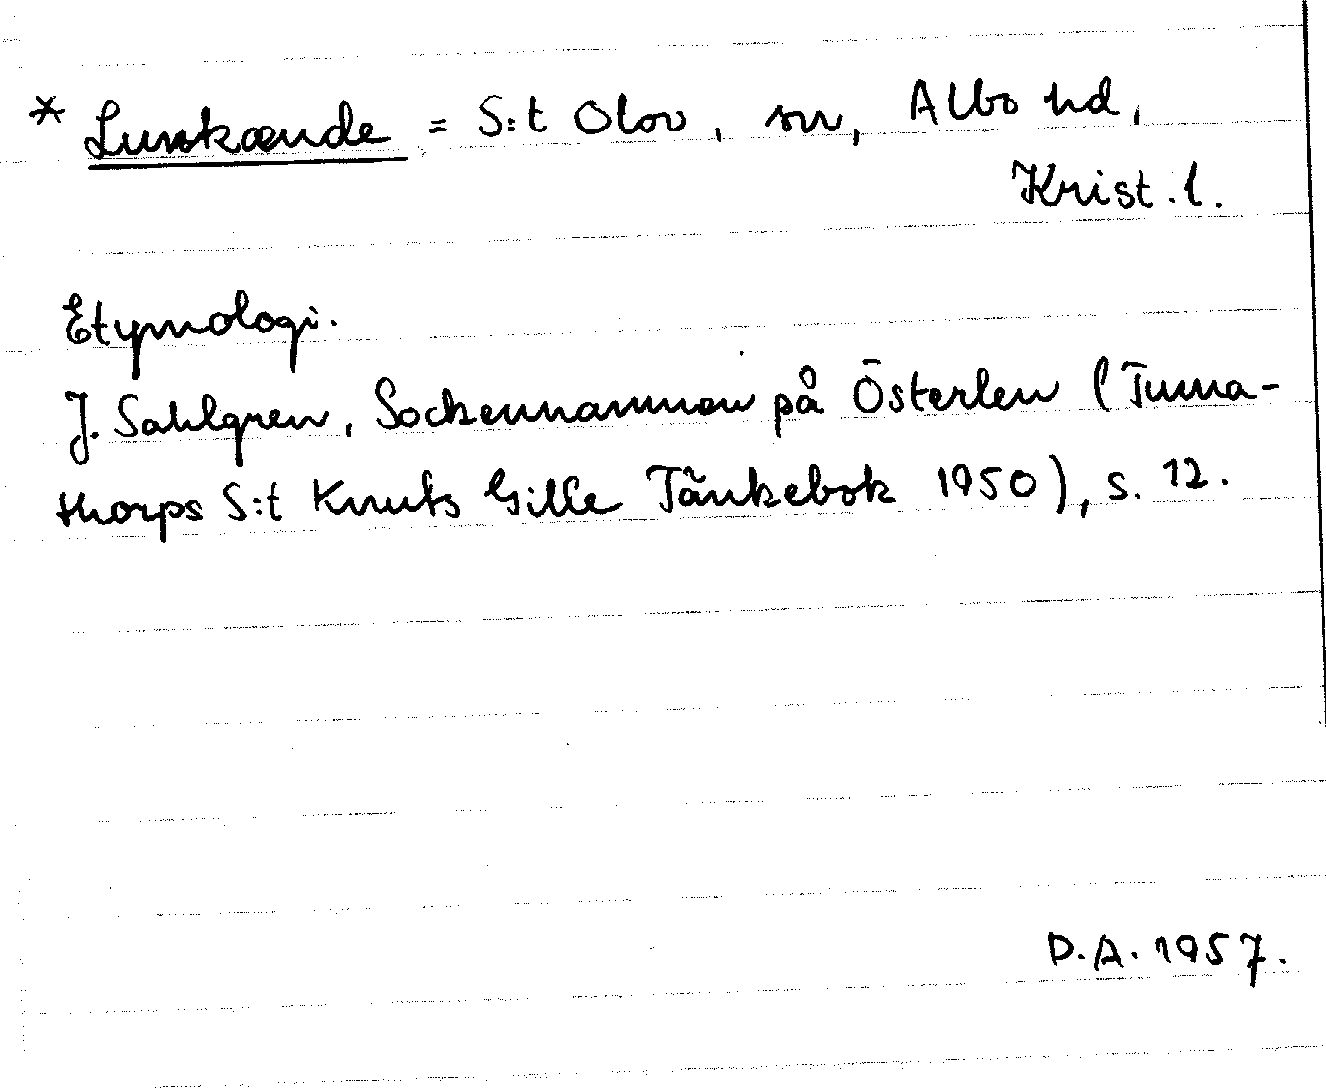 * Lunkænde = S:t Olov, sn, Albo hd,
Krist. l.
Etymologi.
J. Sahlgren, Sockennamnen på Österlen (Tuma-
thorps S:t Knuts Gille Tänkebok 1950), s. 12.
D.A. 1957.